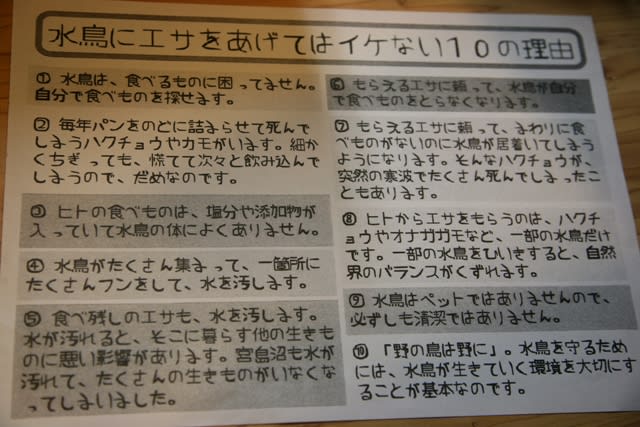 水鳥にエサをあげてはイケない１０の理由
① 水鳥は、食べるものに困ってません。
自分で食べものを探せます。
② 毎年パンをのどに詰まらせて死んで
しまうハクチョウやカモがいます。細か
くちぎっても、慌てて次々と飲み込んで
しまうので、だめなのです。
③ ヒトの食べものは、塩分や添加物が
入っていて水鳥の体によくありません。
④ 水鳥がたくさん集まって、一箇所に
たくさんフンをして、水を汚します。
⑤ 食べ残しのエサも、水を汚します。
水が汚れると、そこに暮らす他の生きも
のに悪い影響があります。宮島沼も水が
汚れて、たくさんの生きものがいなくな
ってしまいました。
⑥ もらえるエサに頼って、水鳥が自分
で食べものをとらなくなります。
⑦ もらえるエサに頼って、まわりに食
べものがないのに水鳥が居着いてしまう
ようになります。そんなハクチョウが、
突然の寒波でたくさん死んでしまったこ
ともあります。
⑧ ヒトからエサをもらうのは、ハクチ
ョウやオナガガモなど、一部の水鳥だけ
です。一部の水鳥をひいきすると、自然
界のバランスがくずれます。
⑨ 水鳥はペットではありませんので、
必ずしも清潔ではありません。
⑩ 「野の鳥は野に」。水鳥を守るため
には、水鳥が生きていく環境を大切にす
ることが基本なのです。